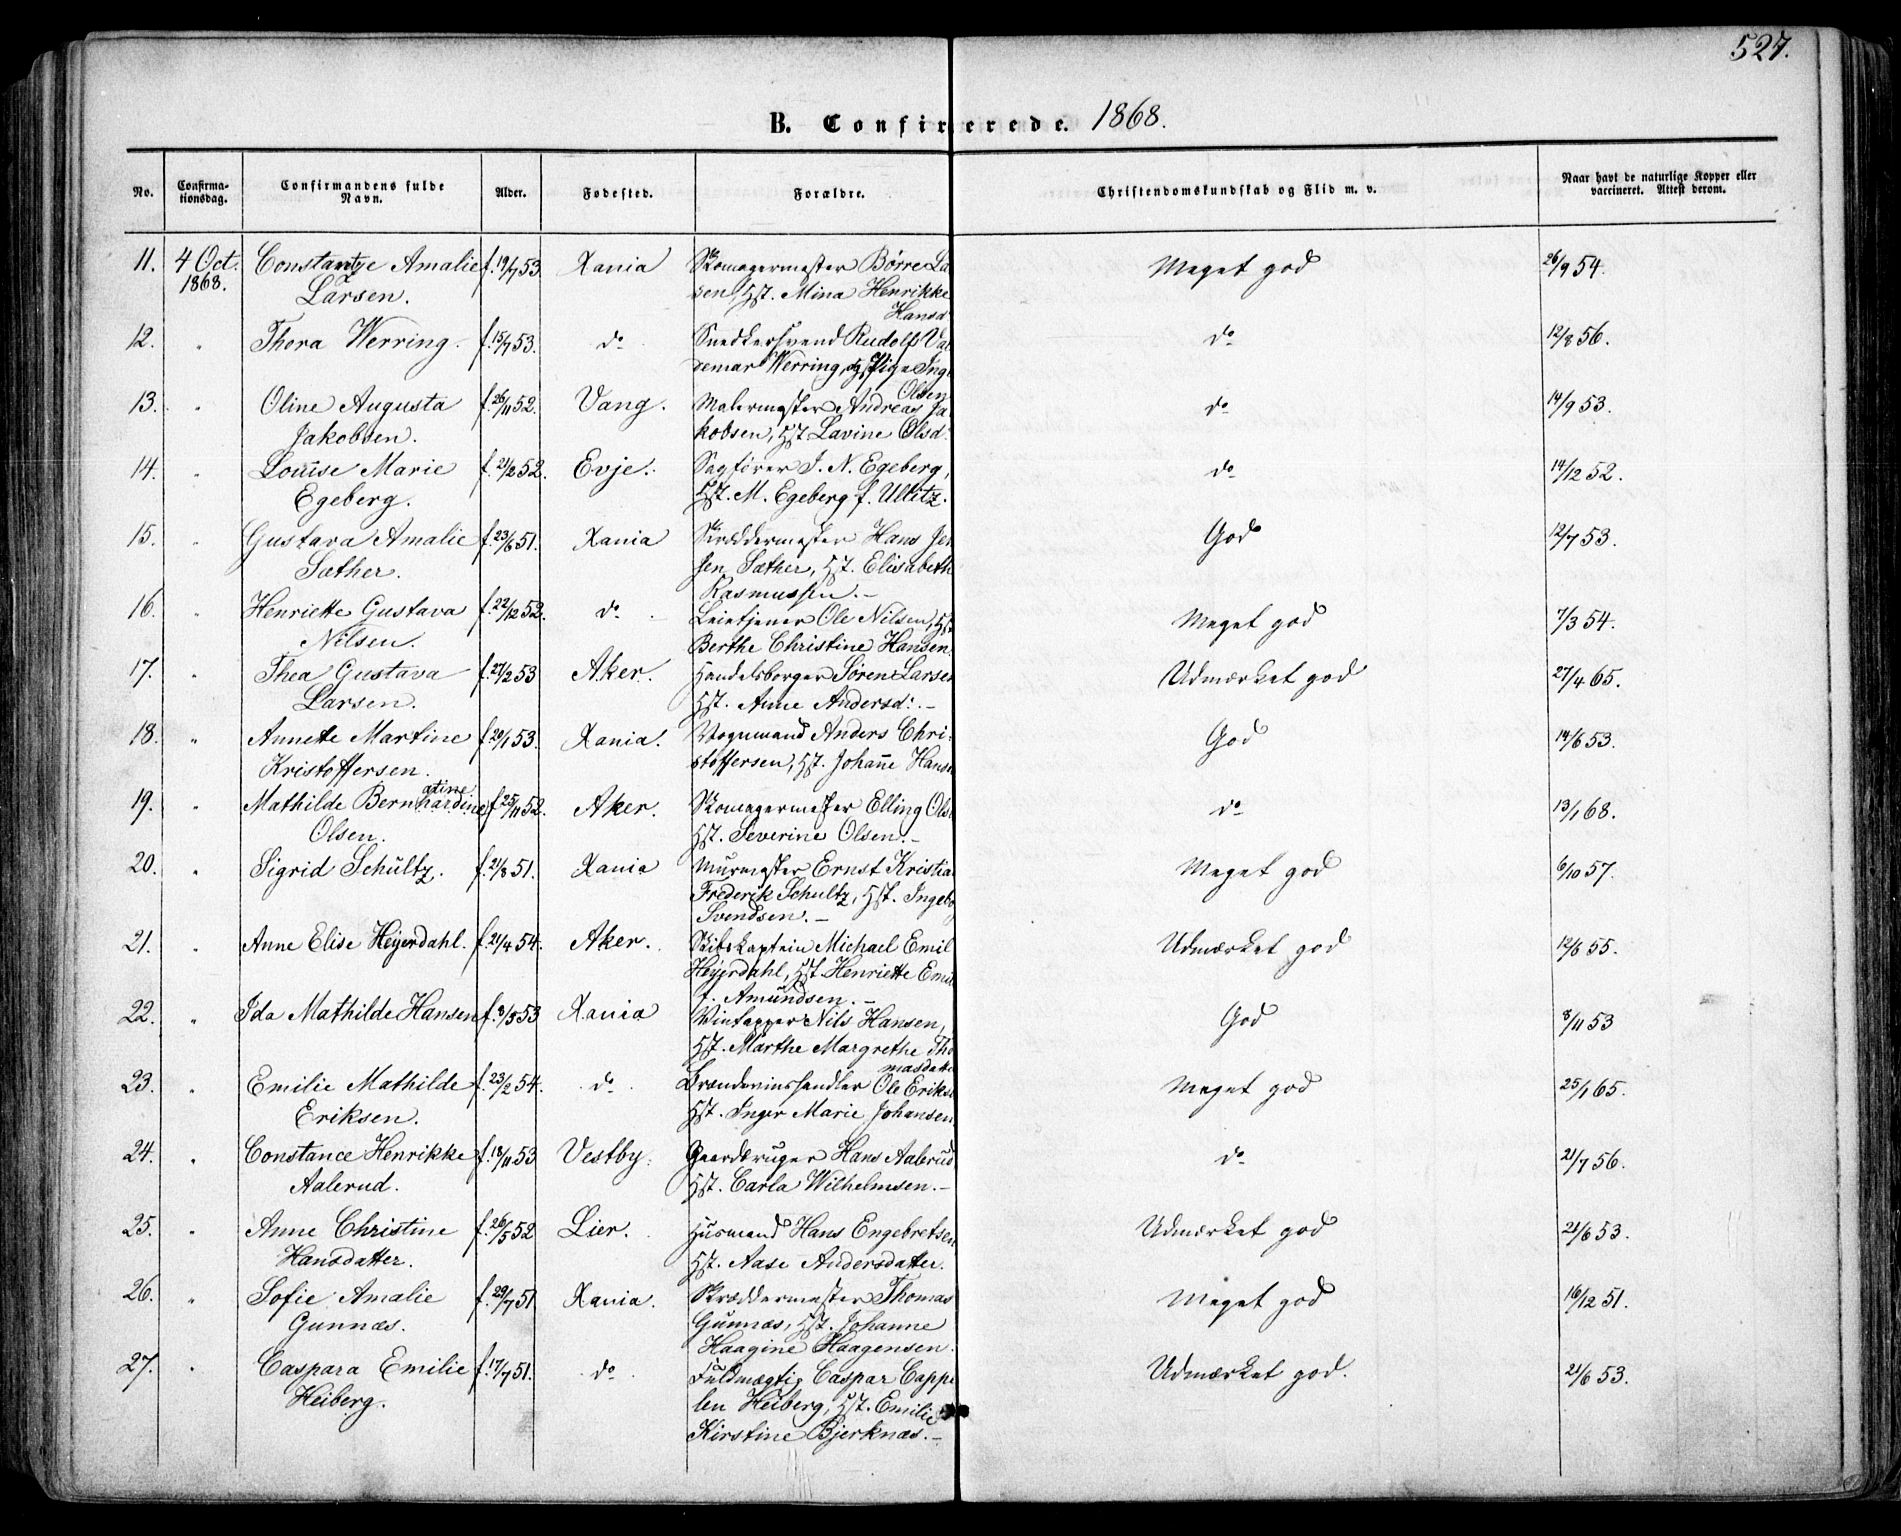 527.
B. Confirmerede. 1868.
No. Confirmationsdag. Confirmandens fulde Navn. Alder. Fødested. Forældre. Christendomskundskab og Flid m. v. Naar havt de naturlige Kopper eller vaccineret. Attest derom.
11. 4 Oct. Constantze Amalie f. 19/7 53. Xania Skomagermester Børre La Meget god 26/9 54.
1868. Larsen. sen, Hst. Mina Henrikke
Hansd
12. " Thora Werring. f. 15/7 53. do Snedkersvend Rudolf Val do 12/8 56.
demar Werring, og Pige Ing.
Olsen
13. " Oline Augusta f. 26/11 52. Vang. Malermester Andreas Ja do 14/9 53.
Jakobsen. kobsen, Hst. Lavine Olsd.
14. " Louise Marie f. 21/2 52. Evje. Sagfører J. N. Egeberg, do 14/12 52.
Egeberg. Hst. M. Egeberg f. Ultitz.
15. " Gustava Amalie f. 23/6 51. Xania Skræddermester Hans Jen God 12/7 53.
Sæther. sen Sæther, Hst. Elisabeth
Rasmussen.–
16. " Henriette Gustava f. 22/12 52. do Leietjener Ole Nilsen, Hst Meget god 7/3 54.
Nilsen. Berthe Christine Hansen.
17. " Thea Gustava f. 27/2 53 Aker. Handelsborger Søren Larsen Udmærket god 27/4 65.
Larsen. Hst. Anne Andersd:.–
18. " Annette Martine f. 20/1 53. Xania. Vognmand Anders Chri- God 14/6 53.
Kristoffersen. stoffersen, Hst. Johanne Hansen
atine
19. " Mathilde Bernhardine f. 25/11 52. Aker. Skomagermester Elling Ols. do 13/1 68.
Olsen. Hst. Severine Olsen.–
20. " Sigrid Schultz. f. 21/8 51. Xania Murmester Ernst Kristia Meget god 6/10 57.
Frederik Schultz, Hst. Ingebo
Svendsen.–
21. " Anne Elise Heyerdahl. f. 21/4 54. Aker. Skibskaptein Michael Emil Udmærket god 12/6 55.
Heyerdahl, Hst. Henriette Emil
f. Amundsen.–
22. " Ida Mathilde Hansen f. 8/5 53 Xania Vintapper Nils Hansen, God 8/11 53
Hst. Marthe Margrethe Tho
masdatte
23. " Emilie Mathilde f. 23/2 54. do Brændevinshandler Ole Eriks Meget god 25/1 65.
Eriksen. Hst. Inger Marie Johansen
24. " Constance Henrikke f. 18/11 53 Vestby. Gaardbruger Hans Aalerud do 21/7 56.
Aalerud. Hst. Carla Wilhelmsen.–
25. " Anne Christine f. 26/5 52 Lier. Husmand Hans Engebretsen Udmærket god 21/6 53.
Hansdatter. Hst. Aase Andersdatter.
26. " Sofie Amalie f. 29/7 51 Xania. Skræddermester Thomas Meget god 16/12 51.
Gunnæs. Gunnæs, Hst. Johanne
Haagine Haagensen.
27. " Caspara Emilie f. 17/7 51. do Fuldmægtig Caspar Cappe Udmærket god. 21/6 53.
Heiberg. len Heiberg, Hst. Emilie
Kirstine Bjerknæs.–